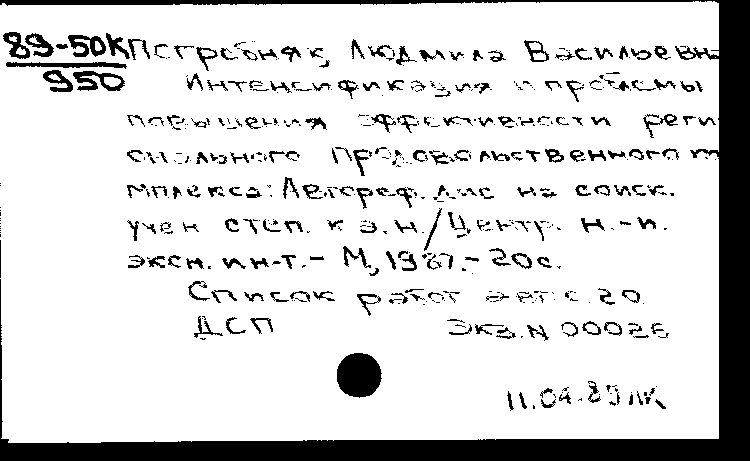 89-50К Погребняк, Людмила Васильевна
950 Интенсификация и проблемы
повышения эффективности реги
онального продовольственного
мплекса: Автореф. дис на соиск.
учен степ. к э.н. / Центр. н.-и.
экон. ин-т. - М, 1987. - 20с.
Список работ авт: с. 20
ДСП Экз. N 00026
11.04.89 ЛК